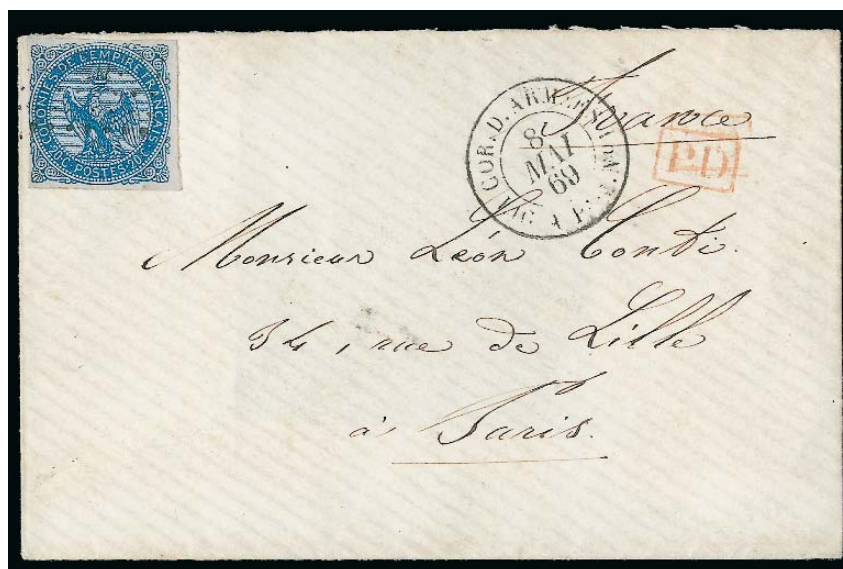 COLONIES DE L'EMPIRE FRANÇAIS
20C. POSTES. 20C.
COR. D. ARM.
8
MAI
69
France
P.D
Monsieur Léon Conti.
34, rue de Lille
à Paris.